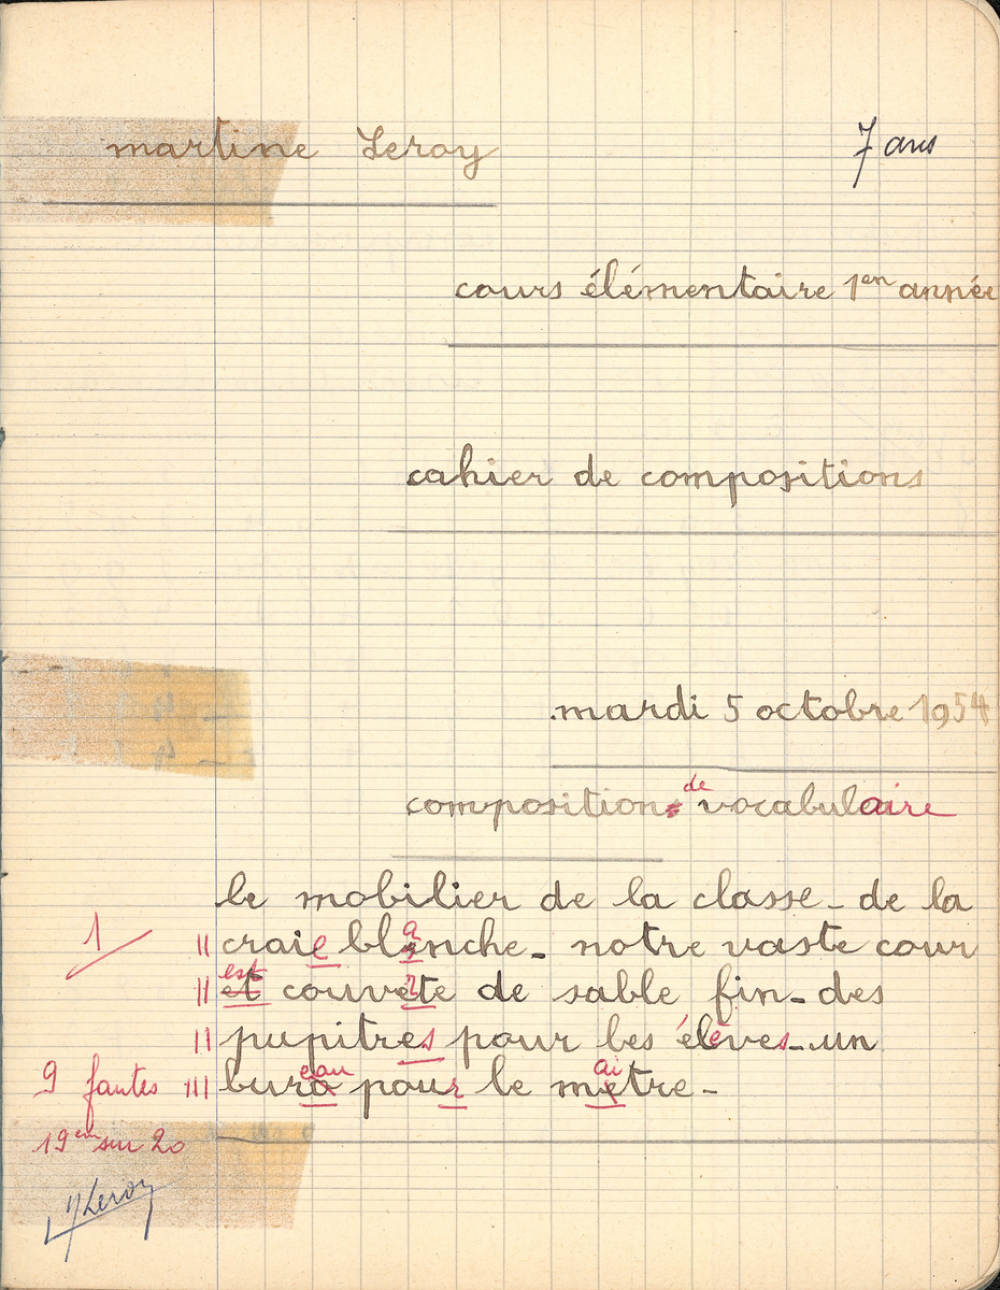 martine Leroy
7 ans
cours élémentaire 1en année
cahier de compositions
mardi 5 octobre 1954
composition de vocabulaire
le mobilier de la classe - de la
1
craie blanche - notre vaste cour
est
et couvrete de sable fin - des
pupitres pour les élèves - un
eau ai
9 fautes buro pour le metre -
19em sur 20
Y Leroy